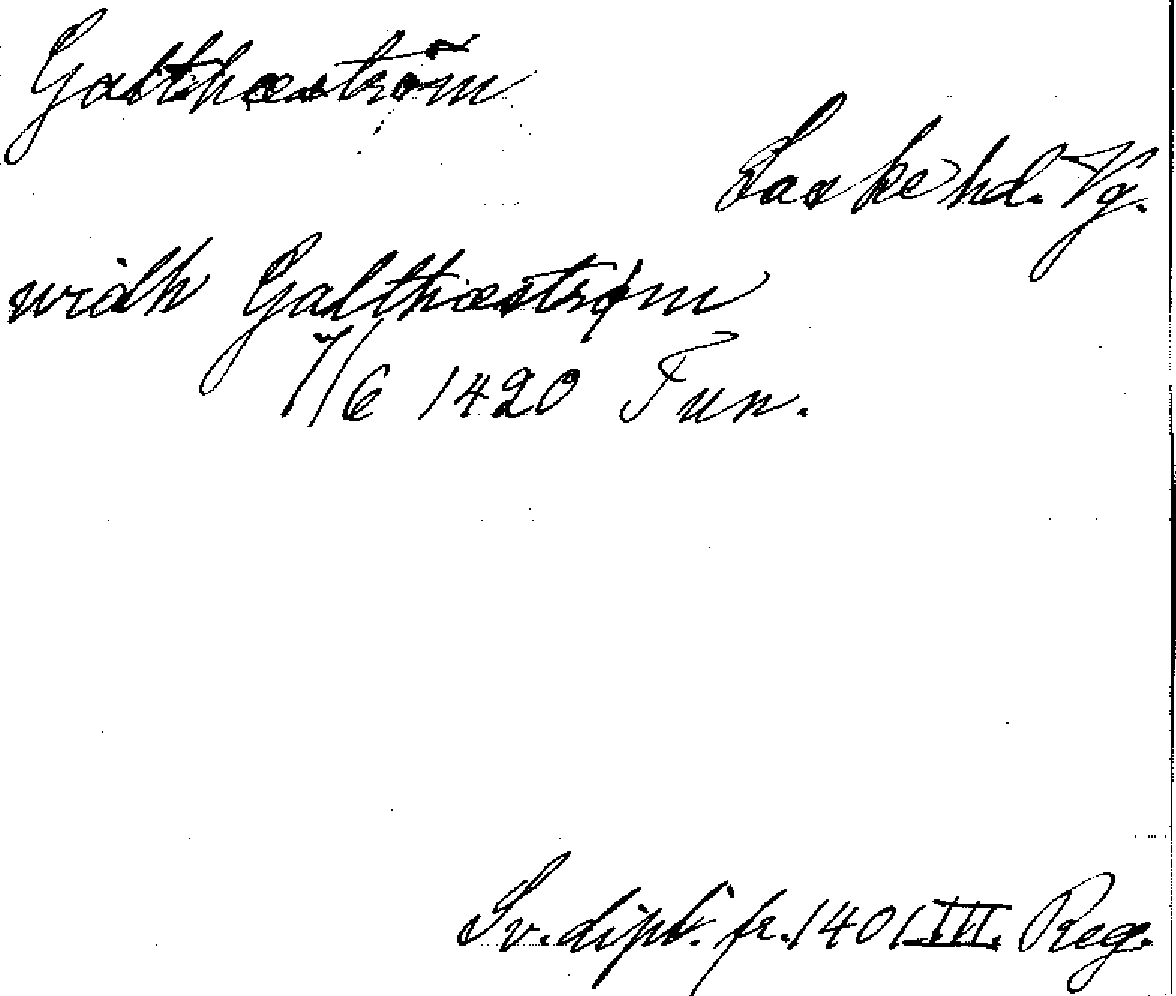 Galthæström
Laske hd. Vg.
widh Galthæstrøm
7/6 1420 Tun.
Sv. dipl. fr. 1401 III. Reg.